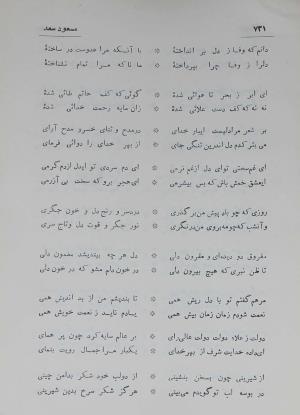 ۷۳۱ مسعود سعد
دانم که وفا ز دل بر انداخته‌ای * با آنکه مرا عدوست در ساخته‌ای
دلرا ز وفا چرا بپرداخته‌ای * مانا که مرا تمام نشناخته‌ای
ای ابر ز بحر تا هوائی شده‌ای * گوئی که کف خاتم طائی شده‌ای
نه نه که کف دست علائی شده‌ای * زان مایه رحمت خدائی شده‌ای
بر شعر مرا دلیست اینار خدای * در مدح و ثنای خسرو مدح آرای
می بشر کرد دل اندرین تنگی جای * از بهر خدای را دوائی فرمای
ای غم سختی توای دل از غم نرمی * ای دم سردی تو ایدل از دم گرمی
ایعشق خمش باش که بس بیشرمی * ای هجر برو که سخت بی آزرمی
روزی که چو باد پیش من بر گذری * دردسر و رنج دل و خون جگری
و آنشب که چو مه بروی من در نگری * نور جگر و قوت دل و تاج سری
مفروق دو دیده‌ای و مقرون دلی * دل هر چه بیندیشد مضمون دلی
تا ظن نبری که هیچ بیرون دلی * در خون دلم مشو که در خون دلی
مرهم گفتم تو با دل ریش همی * تا بندیشم من از بد اندیش همی
نعمت شودم زمان زمان بیش همی * یادم ناید ز نعمت خویش همی
دولت ز علاء دولت دولت عالی رای * بر عالم سایه کرد چون پر همای
ای داده خدایت شرف از بهر خدای * یکبار مرا جمال رویت بنمای
از شیرینی چون بسخن بنشینی * از دولب خود شکر بدامن چینی
در بوسه لب تو گویدم می بینی * هرگز شکر سرخ بدین شیرینی